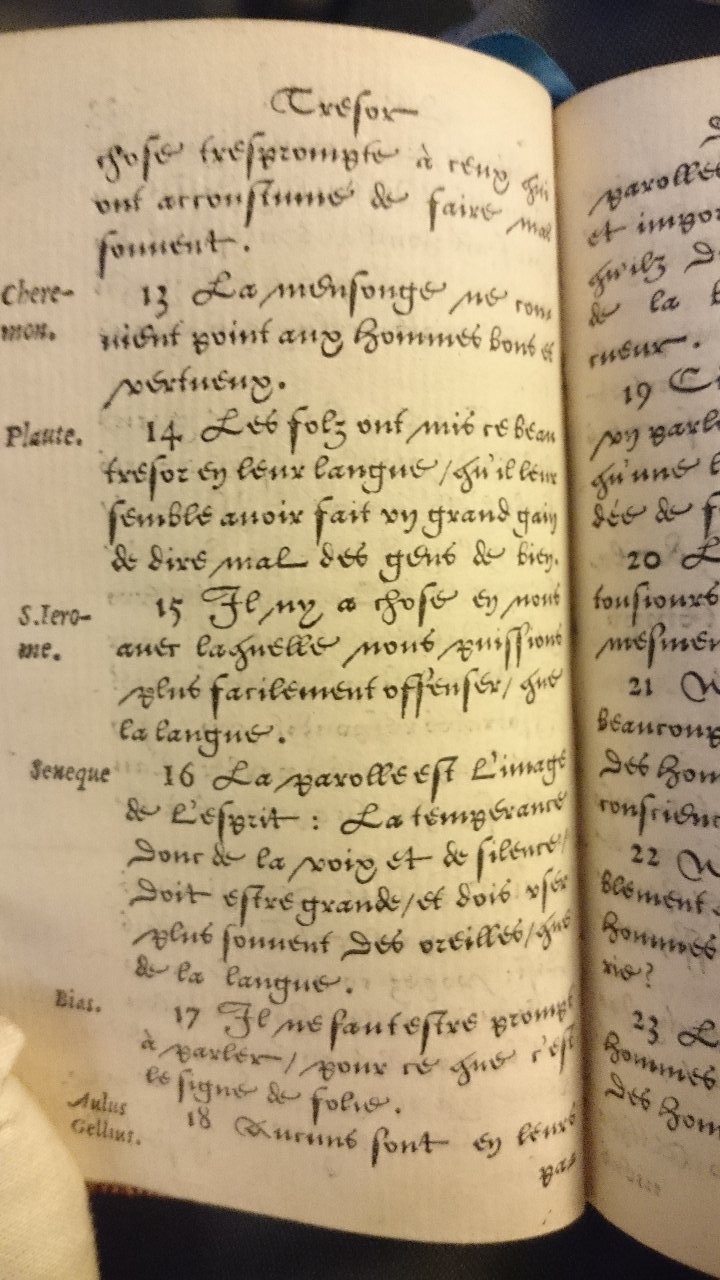 Tresor
chose tresprompte à ceux qui
ont accoustumé de faire mal
souuent.
Chere-
mon.
13 La mensonge ne con
uient point aux hommes bons et
vertueux.
Plaute.
14 Les folz ont mis ce beau
tresor en leur langue / qu'il leur
semble auoir fait vn grand gain
de dire mal des gens de bien.
S. Iero-
me.
15 Il n'y a chose en nous
auec laquelle nous puissions
plus facilement offenser / que
la langue.
Seneque
16 La parolle est l'image
de l'esprit : La temperance
donc de la voix et de silence /
doit estre grande / et dois vser
plus souuent des oreilles / que
de la langue.
Bias.
17 Il ne faut estre prompt
à parler / pour ce que c'est
le signe de folie.
Aulus
Gellius.
18 Aucuns sont en leurs
pa
parolles
et impor
qu'ilz
de la
cueur.
19
vn parl
qu'une
dée de f
20 L
tousiours
mesmem
21
beaucoup
des hom
conscienc
22
blement
hommes
rie?
23 L
hommes
des hom